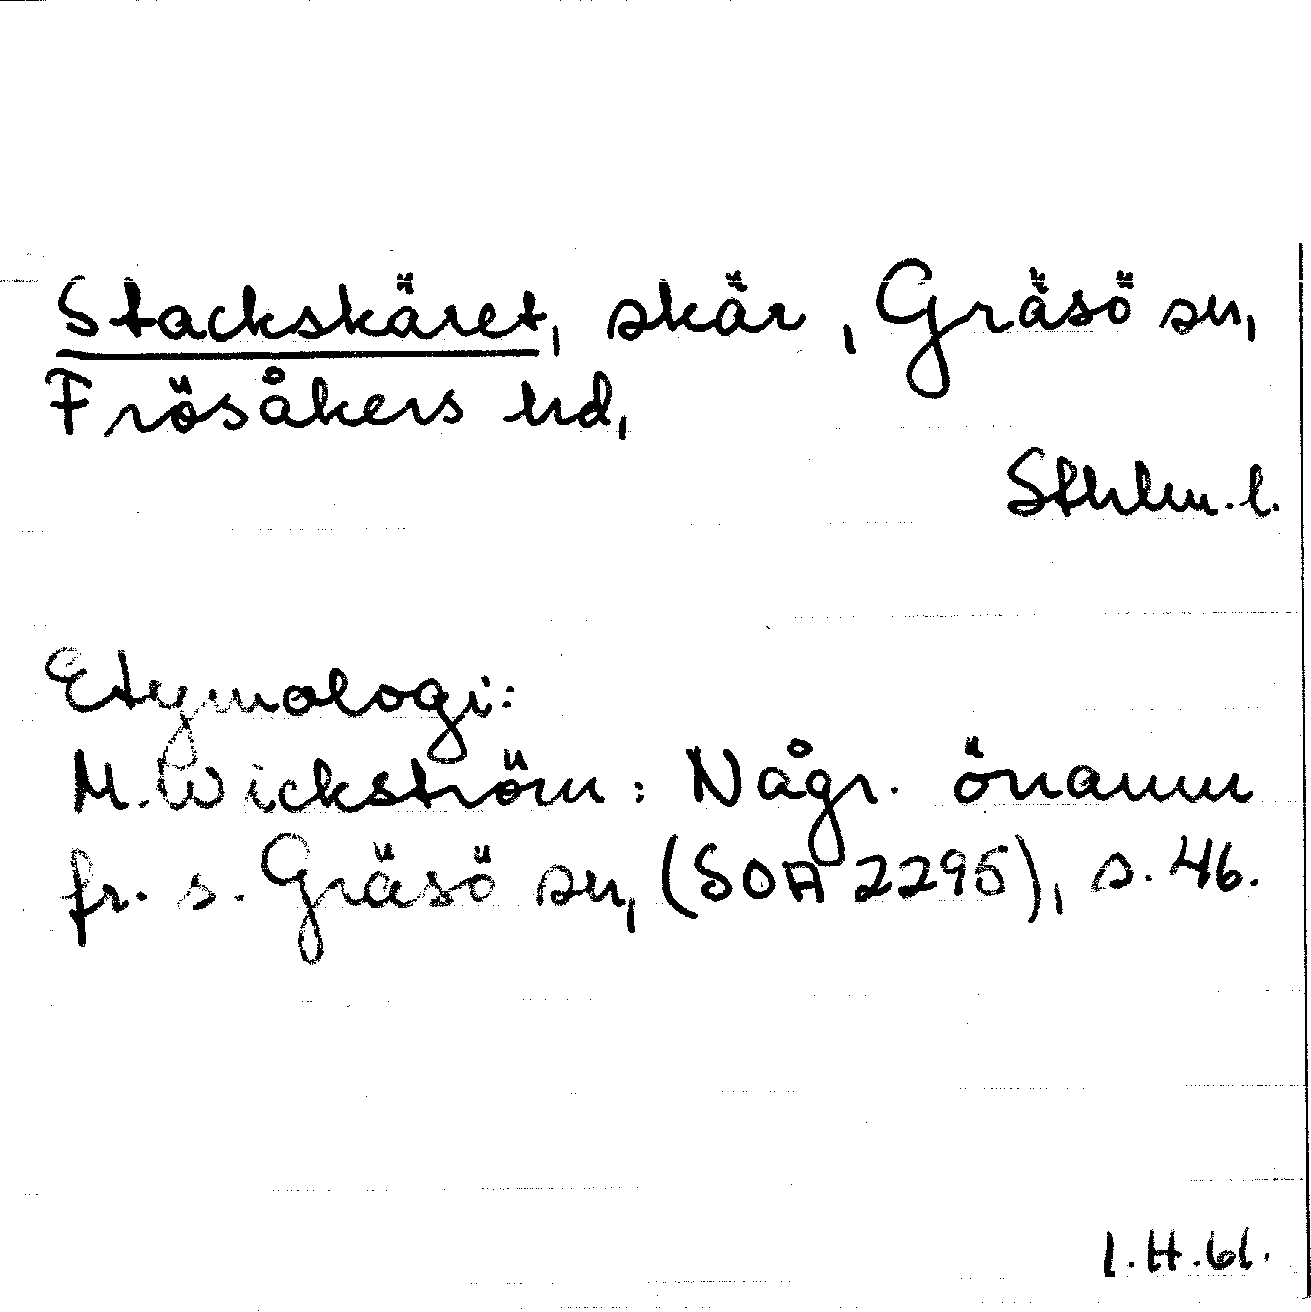 Stackskäret, skär, Gräsö sn,
Frösåkers hd,
Sthlm. l.
Etymologi:
M. Wickström: Någr. önamn
fr. s. Gräsö sn, (SOA 2295), s. 46.
I.H.61.